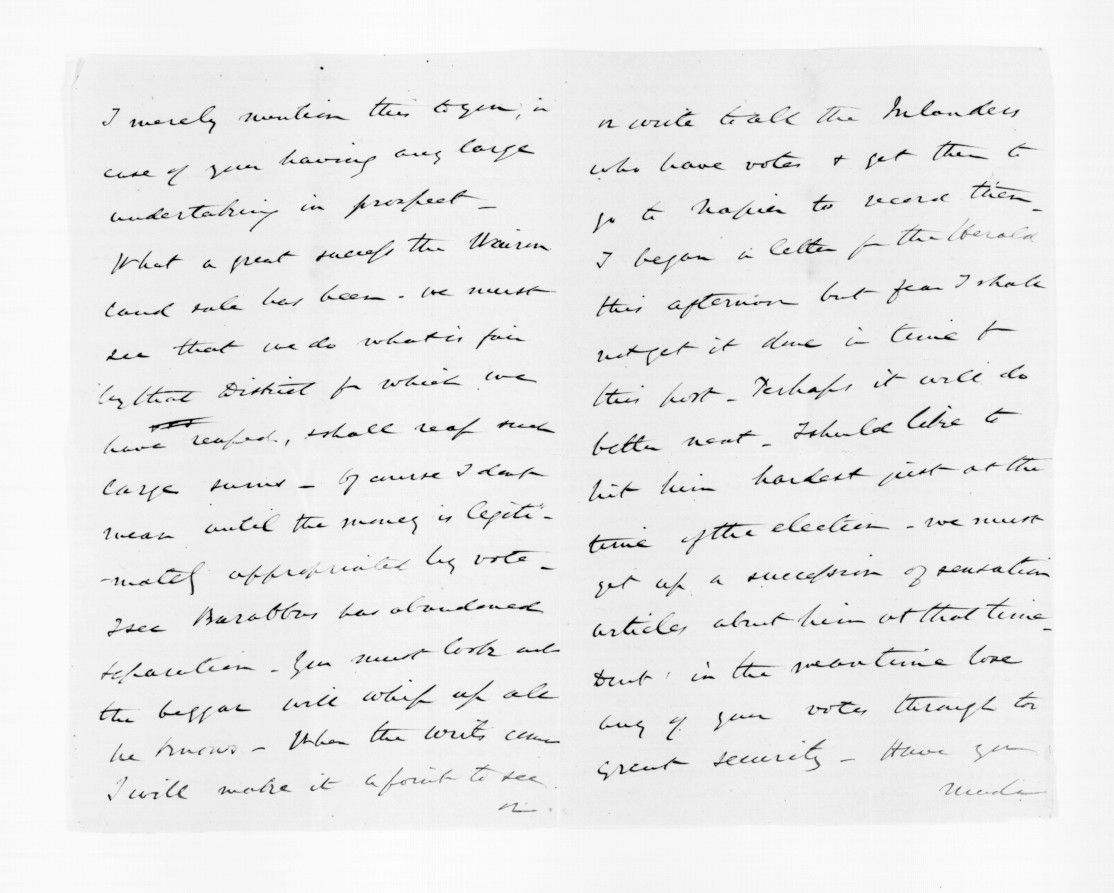 I merely mention this to you, in
case of your having any large
undertaking in prospect _
What a great success the Wairoa
land sale has been - we must
see that we do what is fair
by that District for which we
have reaped, & shall reap such
large sums _ Of course I dont
mean until the money is legiti-
-mately appropriated by vote _
I see Barabbas has abandoned
separation _ You must look out
the beggar will whip up all
he knows _ When the writs come
I will make it a point to see
or
or write to all the Inlanders
who have votes & get them to
go to Napier to record them _
I began a letter for the Herald
this afternoon but fear I shall
not get it done in time for
this post _ Perhaps it will do
better next _ I should like to
hit him hardest just at the
time of the election - we must
get up a succession of sensation
articles about him at that time _
Dont in the meantime lose
any of your votes through too
great security _ Have you
made